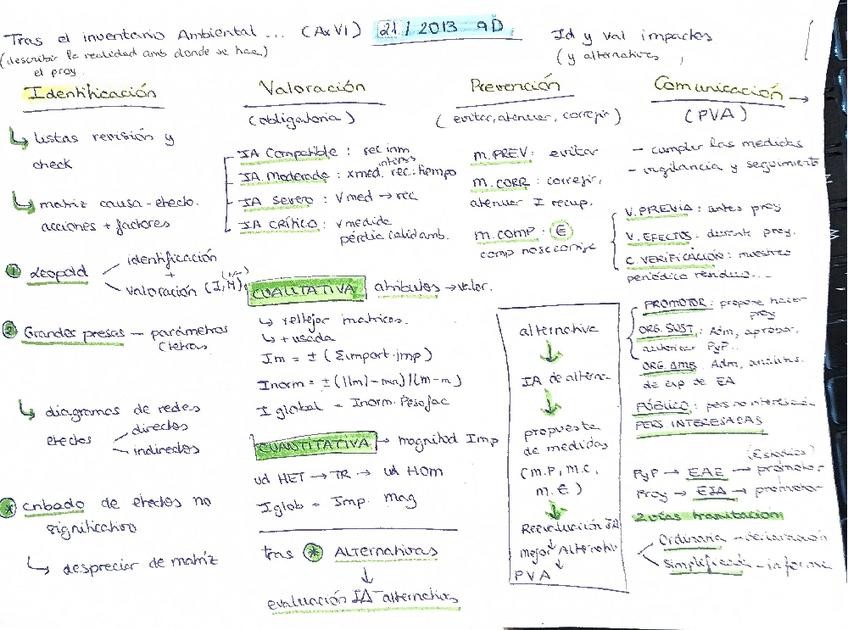 Tras el inventario Ambiental... (AxVI) 21/2013 9D
(describir la realidad amb donde se hace)
el proy.
Id y val impactos
(y alternativas,
Identificación
listas revisión y
check
matriz causa-efecto.
acciones + factores
1 Leopold
identificación
+
valoración (I,M)
2 Grandes presas — parámetros
(letras
diagramas de redes
efectos
directos
indirectos
* cribado de efectos no
significativo
despreciar de matriz
Valoración
(obligatoria)
IA Compatible: rec inm
IA Moderado: xmed. rec. tiempo
IA Severo: Vmed → rec
IA CRÍTICO: v medida
pérdic. calid amb.
CUALITATIVA atributos → valor.
reflejar matrices.
+ usada
Im = ± (Σimport.imp)
Inorm = ± (|Im| - mn) / (m-n)
I global = Inorm. Peso fac
CUANTITATIVA → magnitud Imp
ud HET → TR → ud HOM
Iglob = Imp. Mag
tras * ALTERNATIVAS
↓
evaluación IA alternativas
Prevención
(evitar, atenuar, corregir)
m. PREV: evitar
m. CORR: corregir,
atenuar I recup.
m. comp: €
comp no se corrige
alternativa
IA de alterna.
propuesta
de medidas
(M.P, M.C,
M.E)
Reevaluación IA
mejor Alternativ
PVA
Comunicación →
(PVA)
- cumplir las medidas
- vigilancia y seguimiento
V. PREVIA: antes proy
V. EFECTOS: durante proy.
C. VERIFICACIÓN: muestreo
periódico residuo...
PROMOTOR: propone hacer
proy
ORG. SUST: Adm, aprobar,
autorizar PyP..
ORG. AMB: Adm, análisis.
de exp de EA
PÚBLICO: pers no interesada
PERS INTERESADAS
(Estudios)
PyP → EAE → promotor
Proy → EIA → promotor
2 vías tramitación
Ordinaria - declaración
Simplificada - informe